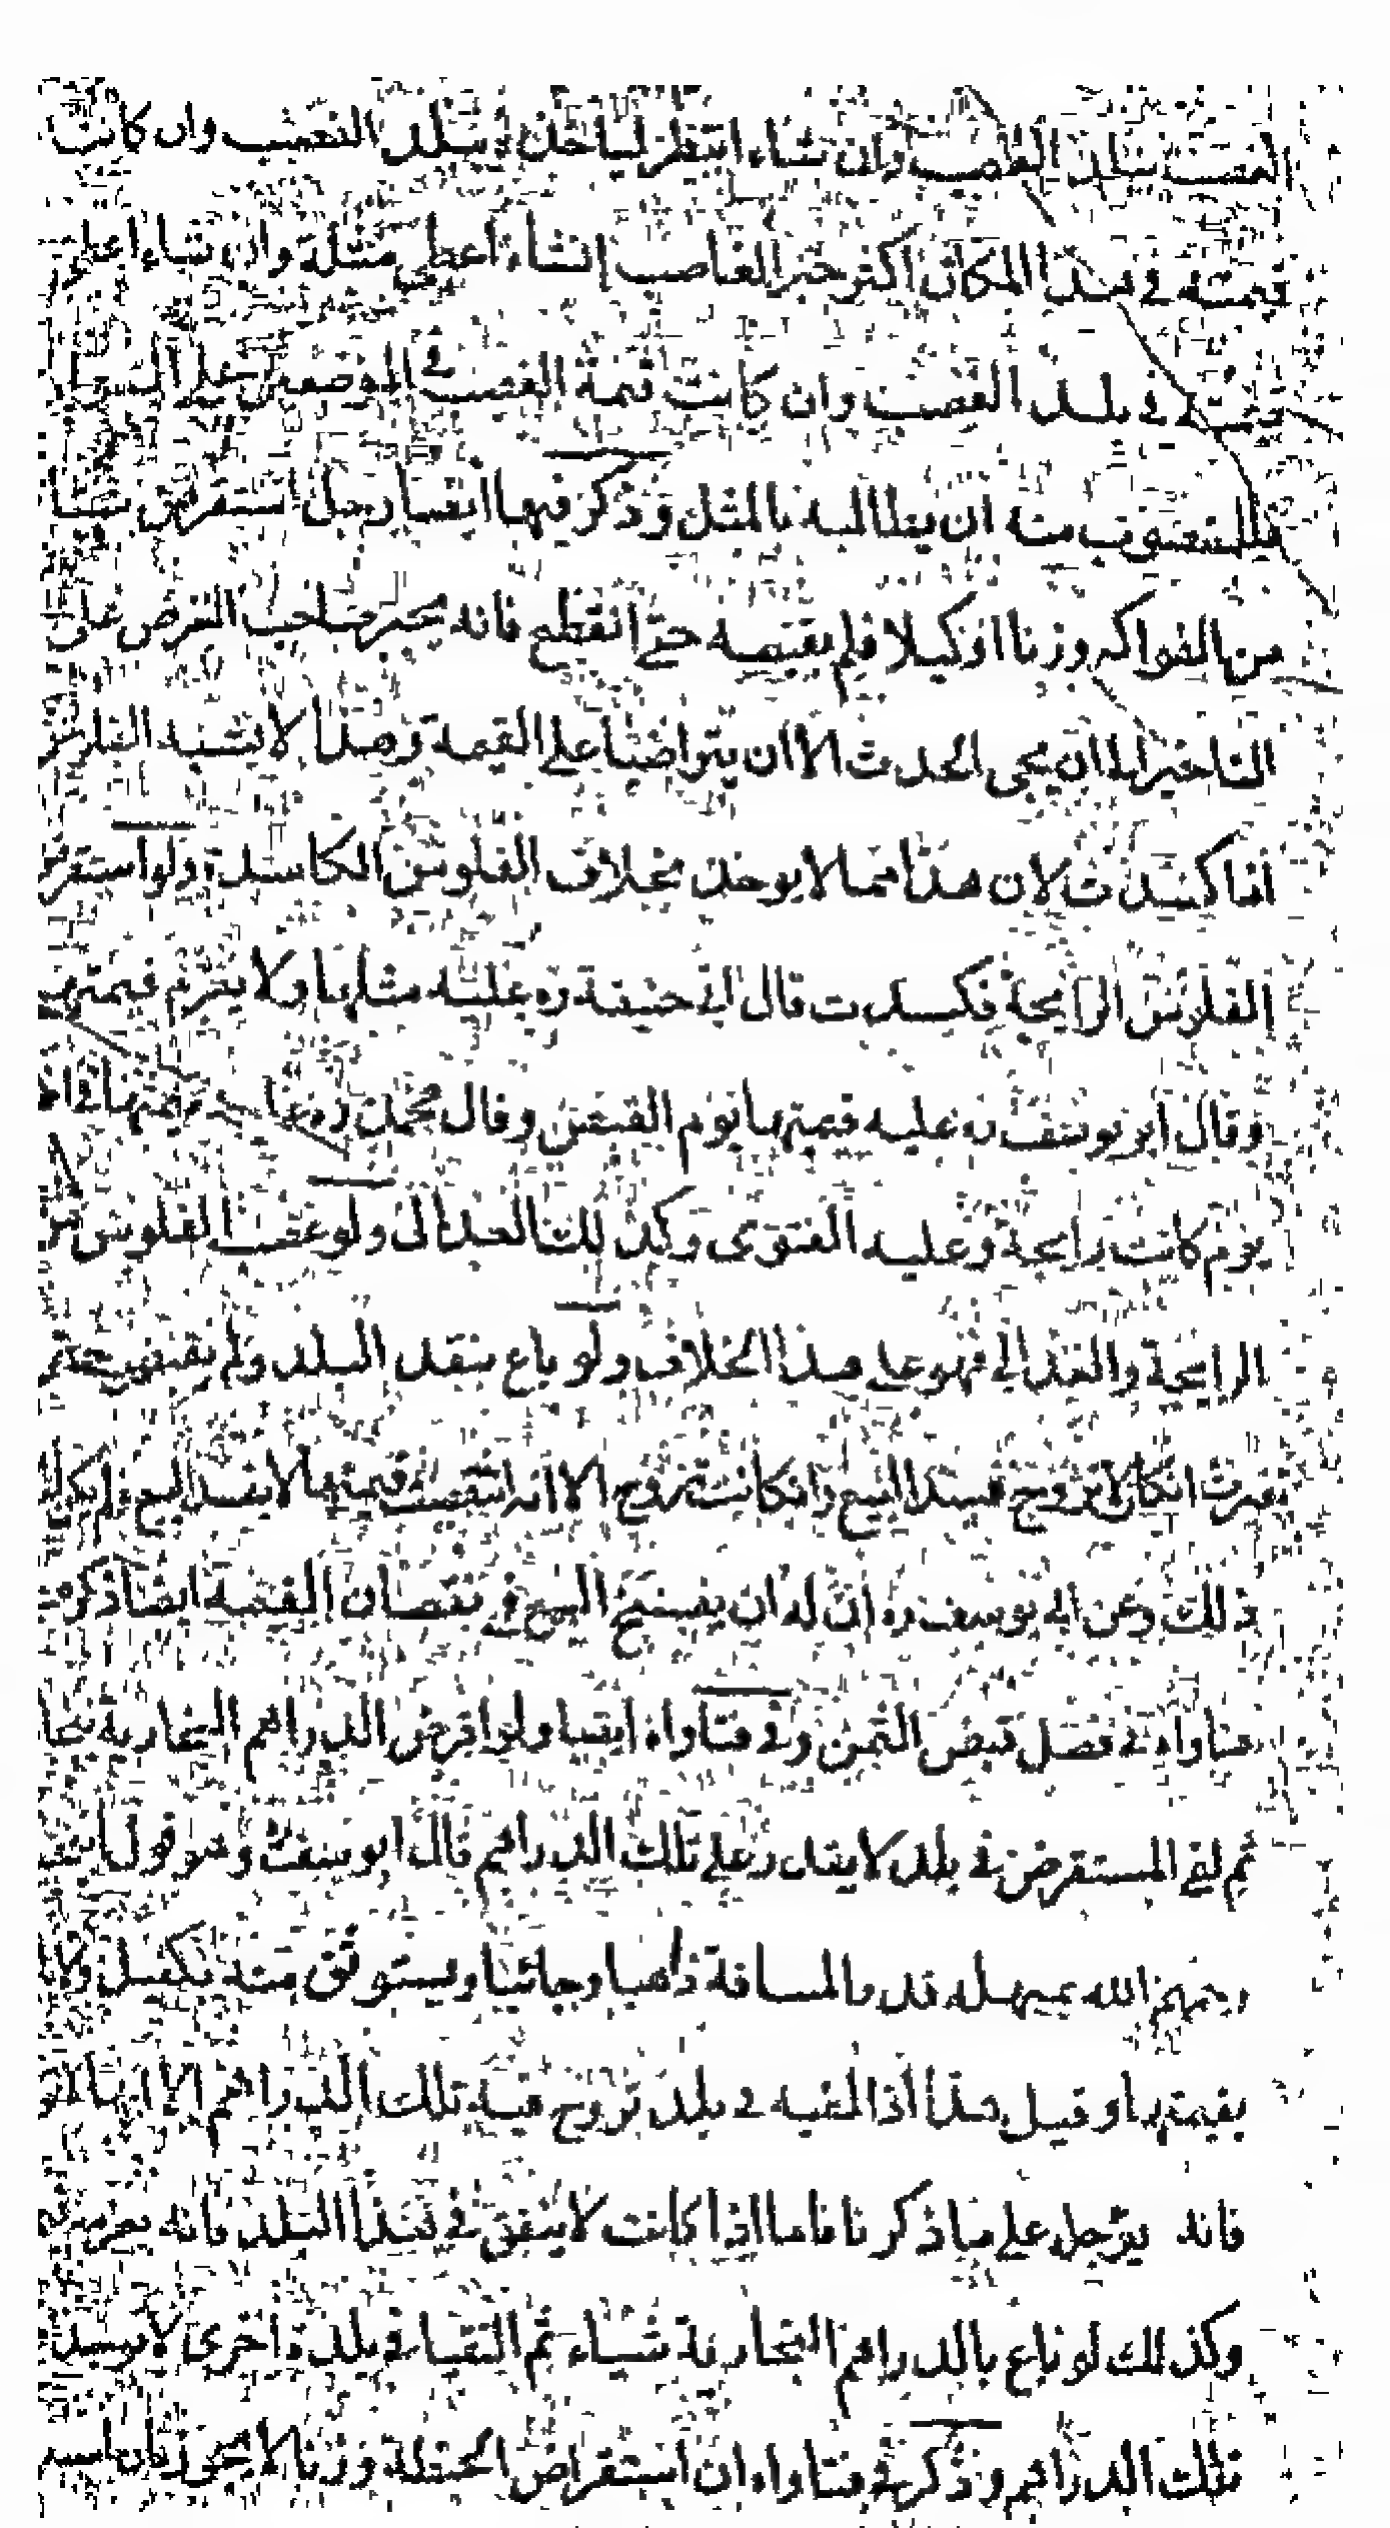 الغصب ببلد الغصب وان شاء انتظر لياخذه ببلد الغصب وان كانت
قيمته في هذا المكان اكثر خير الغاصب انشاء اعطى مثله وان شاء اعطى
قيمته في بلد الغصب وان كانت قيمة الغصب في الموضعين على السواء
فللمغصوب منه ان يطالبه بالمثل وذكر فيها ايضا رجل استقرض شيئا
من الفواكه وزنا اوكيلا فلم يقبضه حتى انقطع فانه يجبر صاحب القرض على
التاخير الى ان يجى الحدث الا ان يتراضيا على القيمة وهذا لا يشبه الفلوس
اذا كسدت لان هذا مما لا يوخذ بخلاف الفلوس الكاسدة ولو استقرض
الفلوس الرايجة فكسدت قال ابي حنيفة ره عليه مثلها ولا يغرم قيمتها
وقال ابو يوسف ره عليه قيمتها يوم القبض وقال محمد ره قيمتها في اخر
يوم كانت رايجة وعليه الفتوى وكذلك العدالى ولو غصب الفلوس
الرايجة والعدالي فهو على هذا الخلاف ولو باع بنقد البلد ولم يقبض حتى
تغيرت انكان لا تروج فسد البيع وانكانت تروج الا انه انتقصت قيمتها لا يفسد البيع ولم يكن له
ذلك وعن ابي يوسف ره ان له ان يفسخ البيع في نقصان القيمة ايضا ذكره في
فتاواه في فصل قبض الثمن وفي فتاواه ايضا ولو اقرض الدراهم البخارية بخارا
ثم لقي المستقرض في بلد لا يقدر على تلك الدراهم قال ابو يوسف وهو قول
رحمهم الله يمهله قدر المسافة ذاهبا وجائيا ويستوثق منه بكفيل ولا
بقيمتها وقيل هذا اذا لقيه في بلد تروج فيه تلك الدراهم الا انها لا
فانه يؤجل على ما ذكرنا فاما اذا كانت لا ينفق في هذا البلد فانه يغرم
وكذلك لو باع بالدراهم البخارية شياء ثم التقيا في بلدة اخرى لا يوجد
تلك الدراهم وذكر في فتاواه ان استقراض الحنطة وزنا لا يجوز